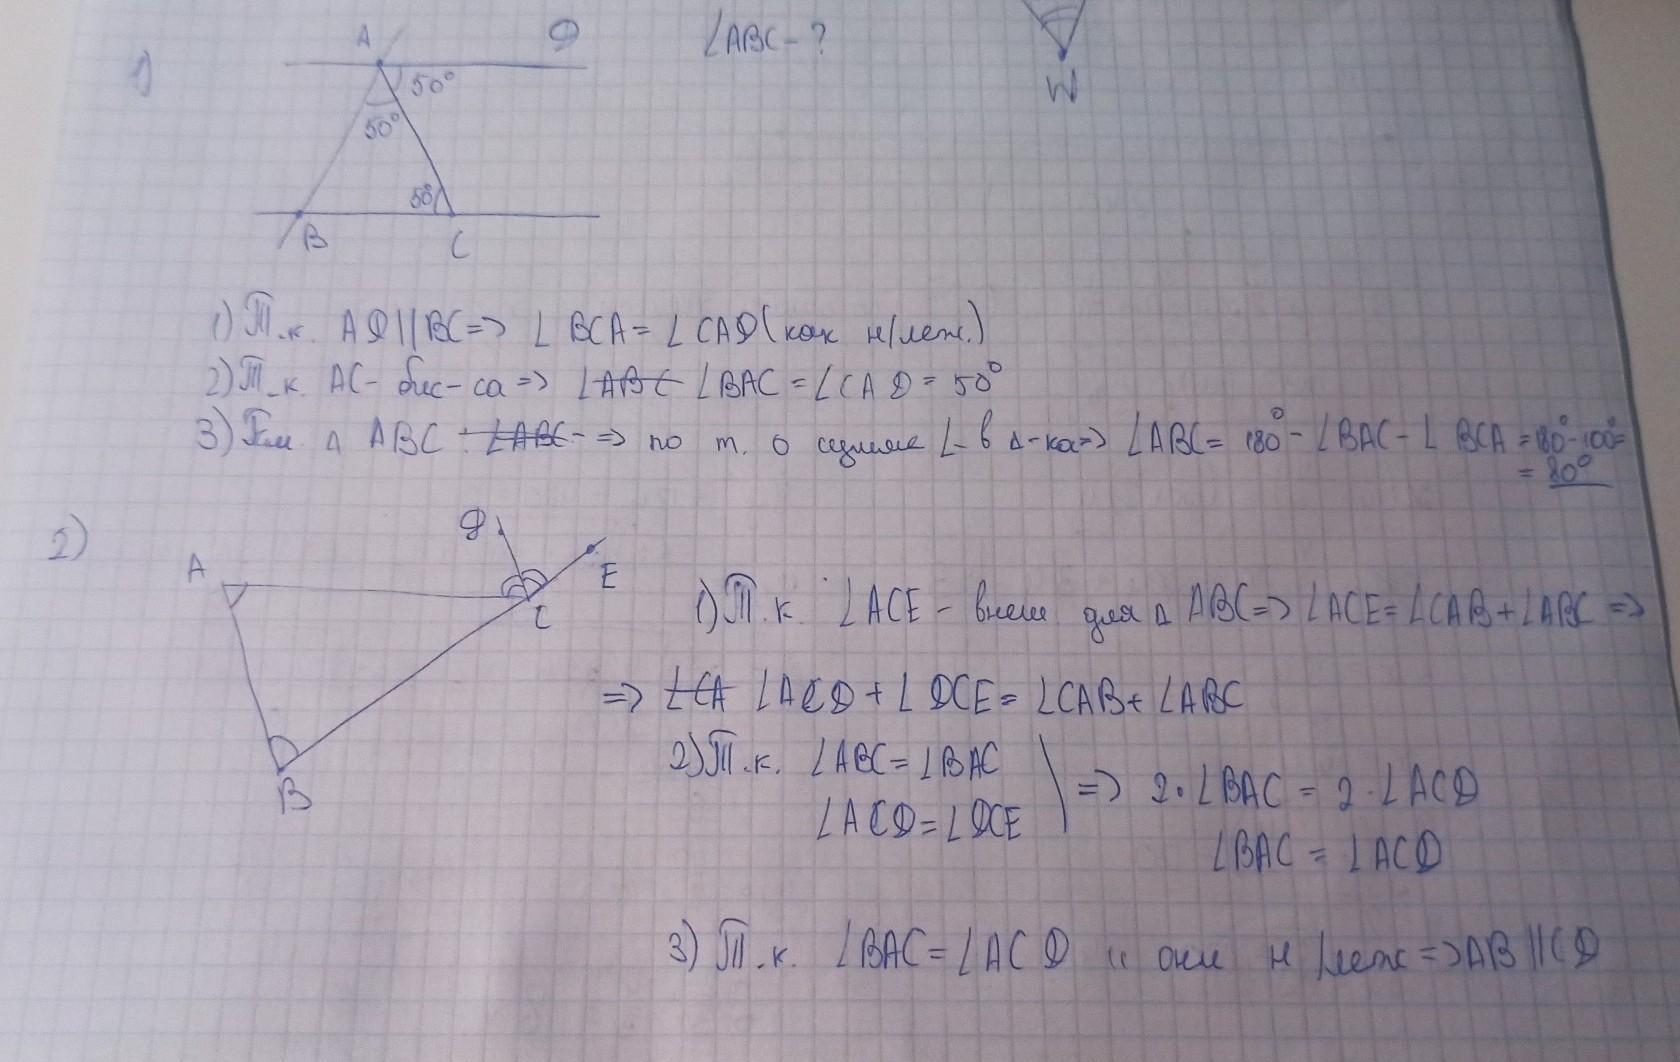 1)
A
D
∠ABC - ?
W
50°
50°
50°
B
C
1) Т.к. AD||BC => ∠BCA = ∠CAD (как н/леж.)
2) Т.к. AC - бис-са => ∠ABC ∠BAC = ∠CAD = 50°
3) Гм. Δ ABC : ∠ABC - => по т. о сумме ∠- в Δ-ка => ∠ABC = 180° - ∠BAC - ∠BCA = 180° - 100° =
= 80°
2)
D
A
E
C
B
1) Т.к. ∠ACE - внеш для Δ ABC => ∠ACE = ∠CAB + ∠ABC =>
=> ∠CA ∠ACD + ∠DCE = ∠CAB + ∠ABC
2) Т.к. ∠ABC = ∠BAC
∠ACD = ∠DCE
=> 2·∠BAC = 2·∠ACD
∠BAC = ∠ACD
3) Т.к. ∠BAC = ∠ACD и они н/леж => AB||CD